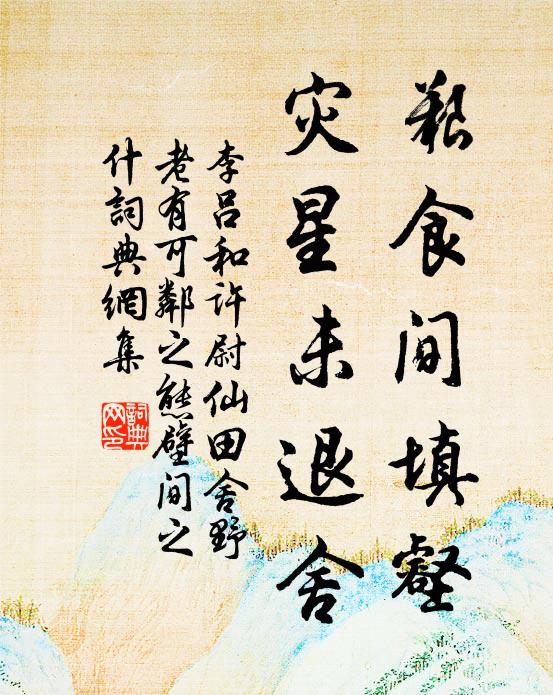 艱食间填壑
灾星未退舍
李吕和許尉仙田舍野
老有可鄰之態壁间之
什詞典網集
詞典网印